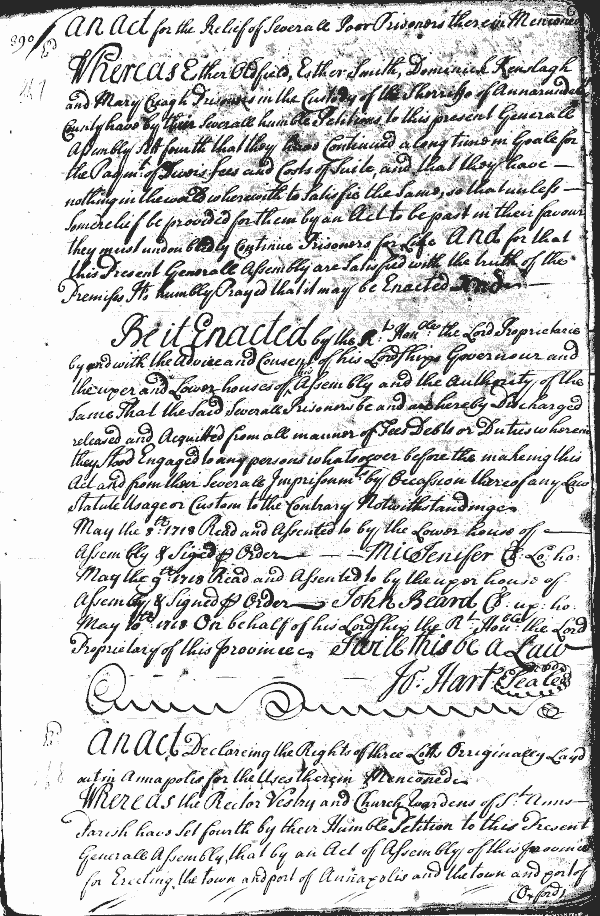 390
An Act for the Relief of Severall Poor Prisoners therein Menconed
Whereas Esther Oldfield, Esther Smith, Dominick Kenslagh
and Mary Creagh Prisoners in the Custody of the Sherriffe of Annarundell
County have by their Severall humble Petitions to this present Generall
Assembly Set fourth that they have Continued a long time in Goale for
the Paymt of Divers fees and Costs of Suite, and that they have
nothing in the world wherewith to Satisfie the Same, so that unless
Some relief be provided for them by an Act to be past in their favour
they must undoubtedly Continue Prisoners for Life And for that
this Present Generall Assembly are Satisfied with the truth of the
Premisses Its humbly Prayed that it may be Enacted And
Be it Enacted by the Rt. Honble the Lord Proprietarie
by and with the Advice and Consent of his Lordships Governour and
the uper and Lower houses of this Assembly and the Authority of the
Same That the Said Severall Prisoners be and are hereby Discharged
released and Acquitted from all manner of Fees Debts or Duties wherein
they stood Engaged to any persons whatsoever before the making this
Act and from their Severall Imprisonmts by Occassion thereof any Law
Statute Usage or Custom to the Contrary Notwithstanding
May the 8th 1718 Read and Assented to by the Lower house of
Assembly & Signed p Order Mic Jenifer Cl. Lo: ho:
May the 9th 1718 Read and Assented to by the uper house of
Assembly & Signed p Order John Beard Cl: up: ho:
May 10th 1718 On behalf of his Lordship the Rt. Honble the Lord
Proprietary of this Province I will this be a Law
Jo: Hart Seale
An Act Declareing the Rights of three Lotts Orriginally Layd
out in Annapolis for the Uses therein Menconed
Whereas the Rector Vestry and Church Wardens of St. Anns
Parish have Set fourth by their Humble Petition to this Present
Generall Assembly, that by an Act of Assembly of this Province
for Erecting the town and port of Annapolis and the town and port of
Oxford